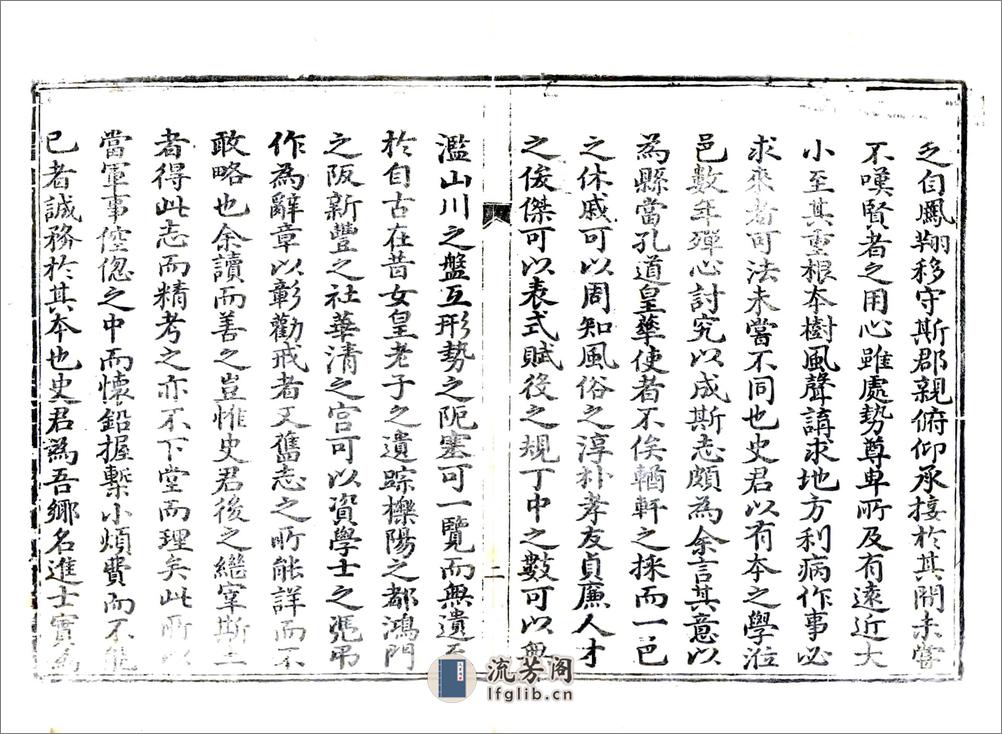 之自鳳翔移守斯郡親俯仰承接於其間未嘗
不嘆賢者之用心雖處勢尊卑所及有遠近大
小至其重根本樹風聲講求地方利病作事必
求來者可法未嘗不同也史君以有本之學涖
邑數年殫心討究以成斯志頗為余言其意以
為縣當孔道皇華使者不俟輶軒之採而一邑
之休戚可以周知風俗之淳朴孝友貞廉人才
之俊傑可以表式賦後之規丁中之數可以無
二
濫山川之盤互形勢之阨塞可一覽而無遺至
於自古在昔女皇老子之遺踪櫟陽之都鴻門
之阪新豐之社華清之宮可以資學士之憑弔
作為辭章以彰勸戒者又舊志之所能詳而不
敢略也余讀而善之豈惟史君後之繼宰斯土
者得此志而精考之亦不下堂而理矣此所以
當軍事倥偬之中而懷鉛握槧小煩費而不能
已者誠務於其本也史君為吾鄉名進士實為
流芳阁
lfglib.cn